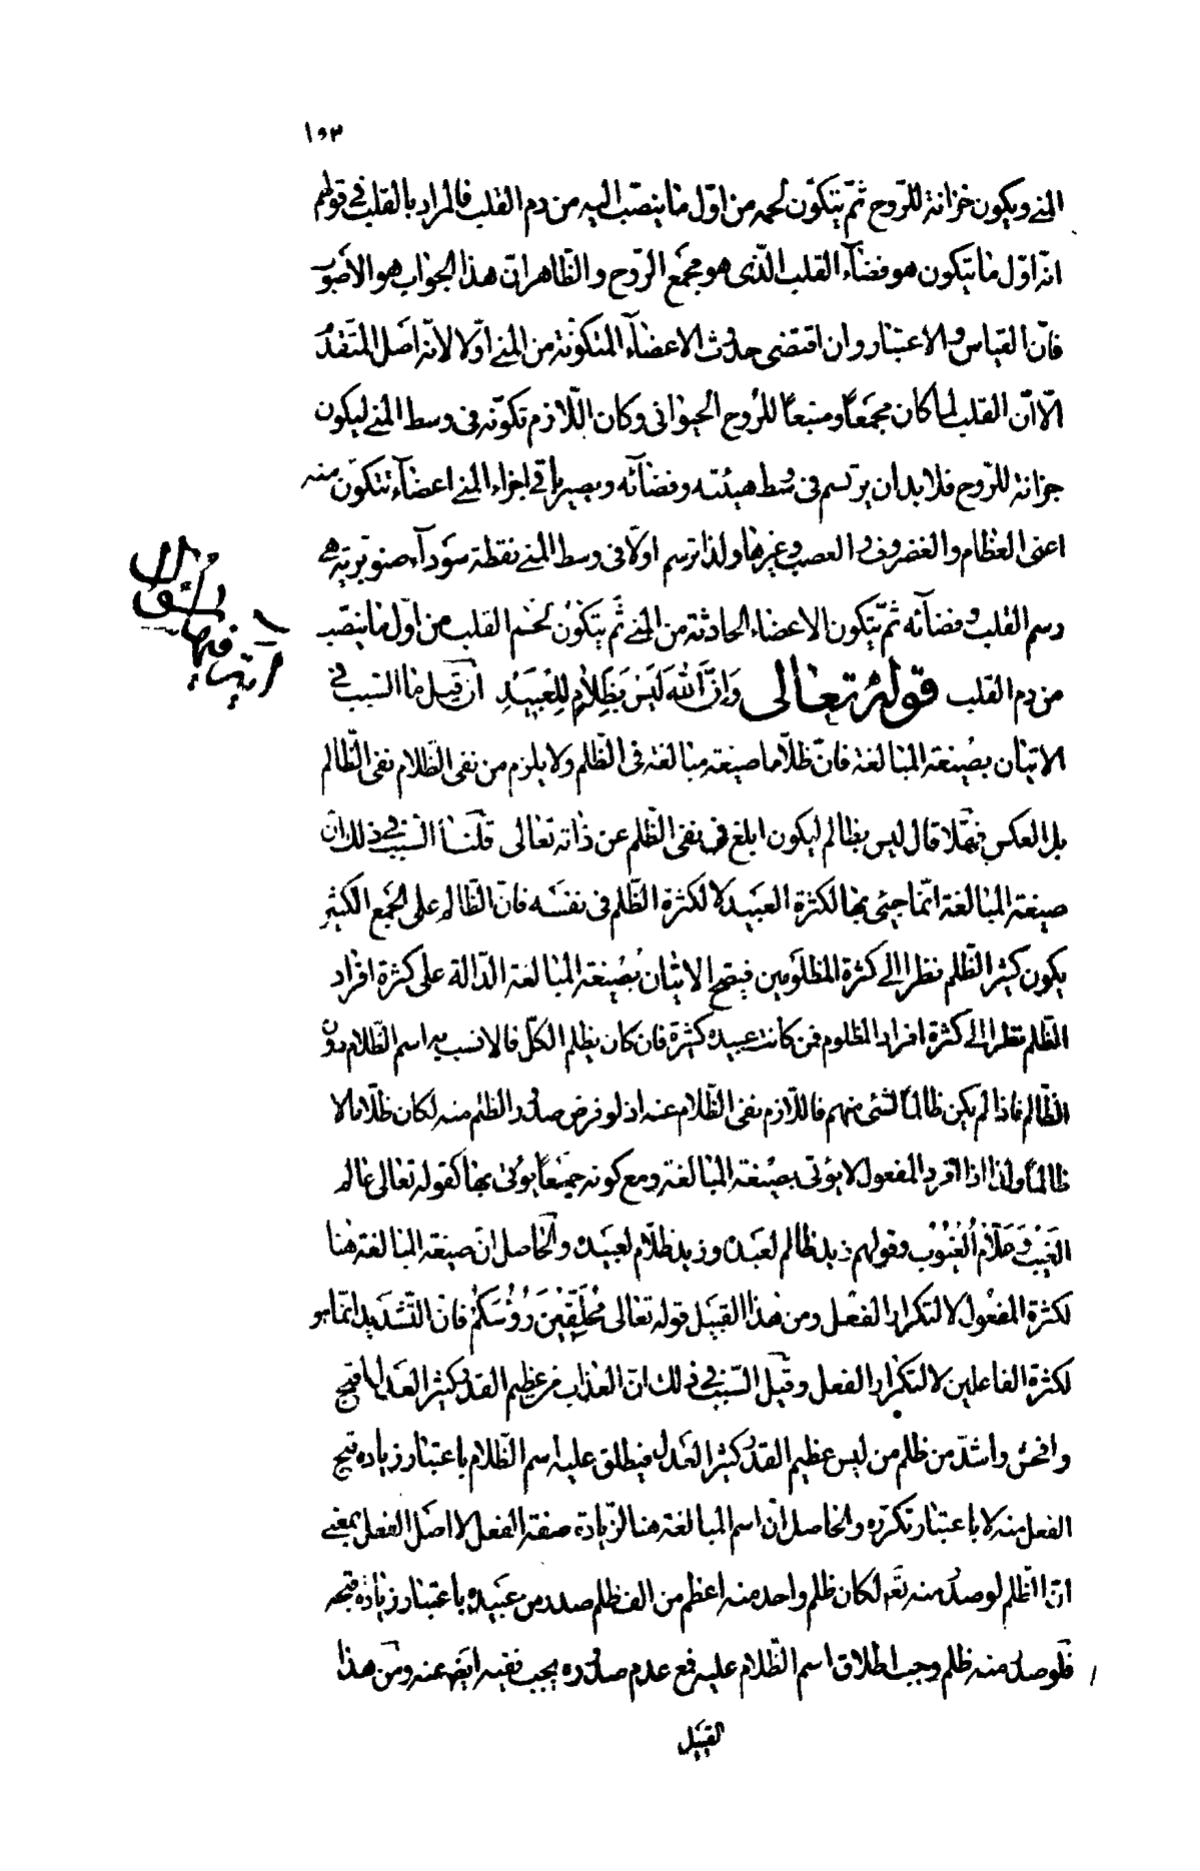 ١٥٣
المنى ويكون خزانة للرّوح ثمّ يتكوّن لحمه من اوّل ما ينصبّ اليه من دم القلب فالمراد بالقلب فى قولهم
انّه اوّل ما يتكون هو فضآء القلب الّذى هو مجمع الرّوح والظّاهر انّ هذا الجواب هو الأصوب
فانّ القياس والاعتبار وان اقتضى حدوث الاعضآء المتكونة من المنى اوّلا لانّه اصل المتقدّ
الّا انّ القلب لما كان مجمعاً ومنبعاً للرّوح الحيوانى وكان اللّازم تكوّنه فى وسط المنى ليكون
خزانة للرّوح فلا بد ان يرتسم فى وسط هيئته وفضآئه ويصير باقى اجزاء المنى اعضآء تتكوّن منه
اعنى العظام والغضروف والعصب وغيرها ولذا ترسم اولّا فى وسط المنى نقطة سودآء صنوبرية هى
رسم القلب وفضآئه ثمّ يتكون الاعضاء الحادثة من المنى ثم يتكوّن لحم القلب من اوّل ما ينصّب
من دم القلب قوله تعالى وَاِنَّ اللهَ لَيْسَ بِظَلّامٍ لِلْعَبيدِ ان قيل ما السّبب فى
الاتيان بصيغة المبالغة فانّ ظلّاما صيغة مبالغة فى الظّلم ولا يلزم من نفى الظّلام نفى الظّالم
بل العكس فهلّا قال ليس بظالم ليكون ابلغ فى نفى الظّلم عن ذاته تعالى قلنا السّبب فى ذلك انّ
صيغة المبالغة انّما جيئ بها لكثرة العبيد لا لكثرة الظّلم فى نفسه فانّ الظّالم على الجمع الكثير
يكون كثير الظّلم نظرا الى كثرة المظلومين فيصّح الاتيان بصيغة المبالغة الدّالة على كثرة افراد
الظّلم نظرا الى كثرة افراد المظلوم فمن كانت عبيده كثيرة فان كان يظلم الكلّ فالانسب به اسم الظّلام دون
الظّالم فاذا لم يكن ظالماً لشئى منهم فاللّازم نفى الظّلام عنه اذ لو فرض صدور الظلم منه لكان ظلّاما لا
ظالماً ولذا اذا افرد المفعول لا يؤتى بصيغة المبالغة ومع كونه جميعاً يؤتى بها كقوله تعالى عالم
الغيب وَعَلّامُ الْغُيُوب وقولهم زيد ظالم لعبده وزيد ظلّام لعبيده والحاصل انّ صيغة المبالغة هنا
لكثرة المفعول لا لتكرار الفعل ومن هذا القبيل قوله تعالى مُحَلِّقينَ رُؤُسَكُمْ فان التّشديد انّما هو
لكثرة الفاعلين لا لتكرار الفعل وقيل السّبب فى ذلك انّ العذاب من عظيم القدر كثير العدل اقبح
وافحش واشدّ من ظلم من ليس عظيم القدر كثير العدل فينطلق عليه اسم الظّلام باعتبار زيادة قبح
الفعل منه لا باعتبار تكرّره والحاصل انّ اسم المبالغة هنا لزيادة صفة الفعل لا اصل الفعل بمعنى
انّ الظّلم لو صدر منه تعّ لكان ظلم واحد منه اعظم من الف ظلم صدر من عبيده باعتبار زيادة قبحه
فلو صدر منه ظلم وجب اطلاق اسم الظّلام عليه فمع عدم صدوره يجب نفيه ايضا عنه ومن هذا
القبيل